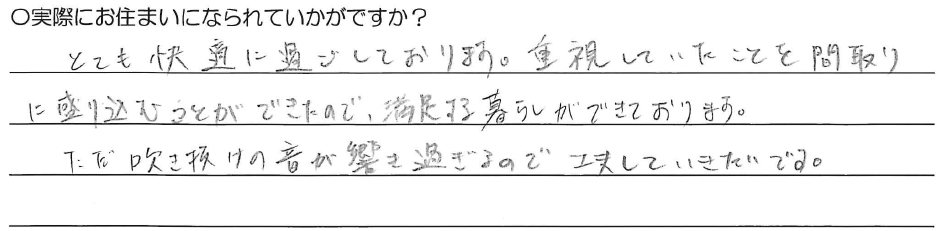 ○実際にお住まいになられていかがですか？
とても快適に過ごしております。重視していたことを間取り
に盛り込むことができたので、満足する暮らしができております。
ただ吹き抜けの音が響き過ぎるので工夫していきたいです。